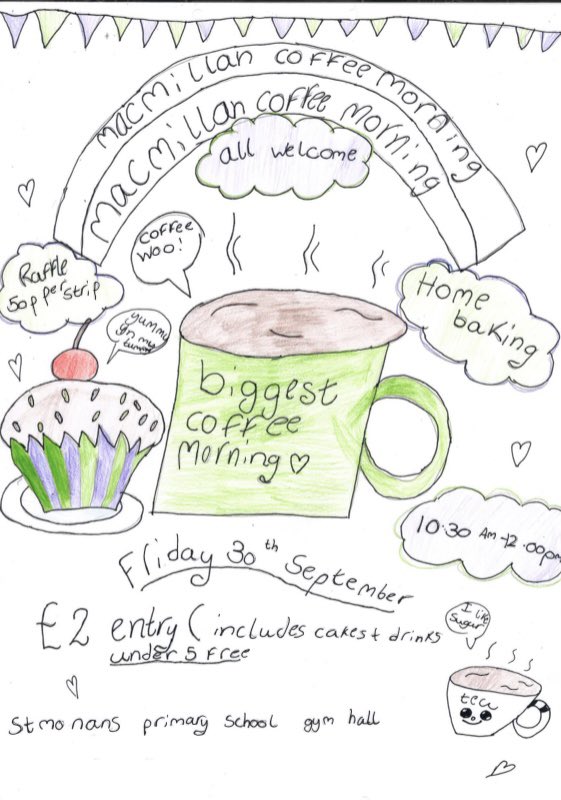 macmillan coffee morning
macmillan coffee morning
all welcome
coffee
woo!
Raffle
50p per strip
yummy
in my
tummy
Home
baking
biggest
coffee
morning
10.30 Am-12.00pm
Friday 30th September
£2 entry (includes cakes + drinks
under 5 free
I like
sugar
tea
St monans primary school gym hall